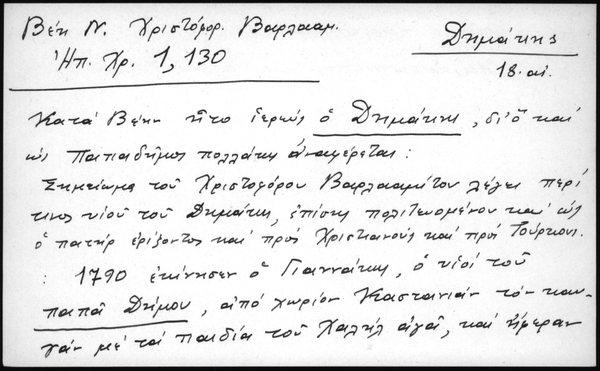 Βέη Ν. Χριστόφορ. Βαρλααμ.
Ἠπ. Χρ. 1, 130
Δημάκης
18. αἰ.
Κατά Βέην ἦτο ἱερεύς ὁ Δημάκης, δι' ὅ καί
ὡς Παπαδῆμος πολλάκις ἀναφέρεται:
Σημείωμα τοῦ Χριστοφόρου Βαρλααμίτου λέγει περί
τινος υἱοῦ τοῦ Δημάκη, ἐπίσης πολιτευομένου καί ὡς
ὁ πατήρ ἐρίζοντος καί πρός Χριστιανούς καί πρός Τούρκους.
: 1790 ἐκίνησεν ὁ Γιαννάκης, ὁ υἱός τοῦ
παπᾶ Δήμου, ἀπό χωρίον Καστανιάν τόν καυ-
γάν μέ τά παιδία τοῦ Χαλήλ ἀγᾶ, καί ἥμεραν